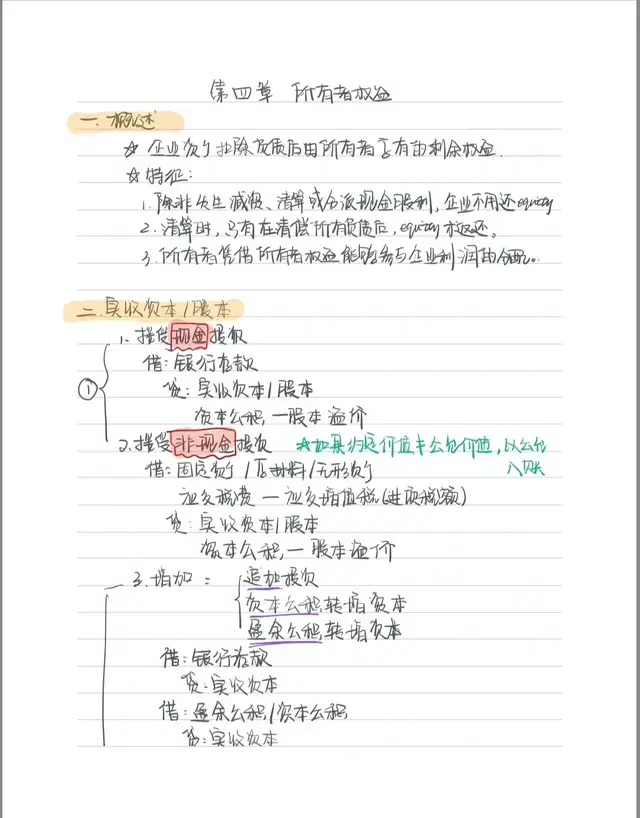 第四章 所有者权益
一. 概述
☆ 企业资产扣除负债后由所有者享有的剩余权益.
☆ 特征:
1. 除非发生减资、清算或分派现金股利, 企业不用还equity
2. 清算时, 只有在清偿所有负债后, equity才返还。
3. 所有者凭借所有者权益能够参与企业利润的分配。
二. 实收资本/股本
1. 接受现金投资
借: 银行存款
① 贷: 实收资本/股本
资本公积, —股本溢价
2. 接受非现金投资 ☆如果约定价值≠公允价值, 以公允
借: 固定资产/原材料/无形资产 入账
应交税费 — 应交增值税(进项税额)
贷: 实收资本/股本
资本公积, — 股本溢价
3. 增加: 追加投资
资本公积转增资本
盈余公积转增资本
借: 银行存款
贷: 实收资本
借: 盈余公积/资本公积
贷: 实收资本